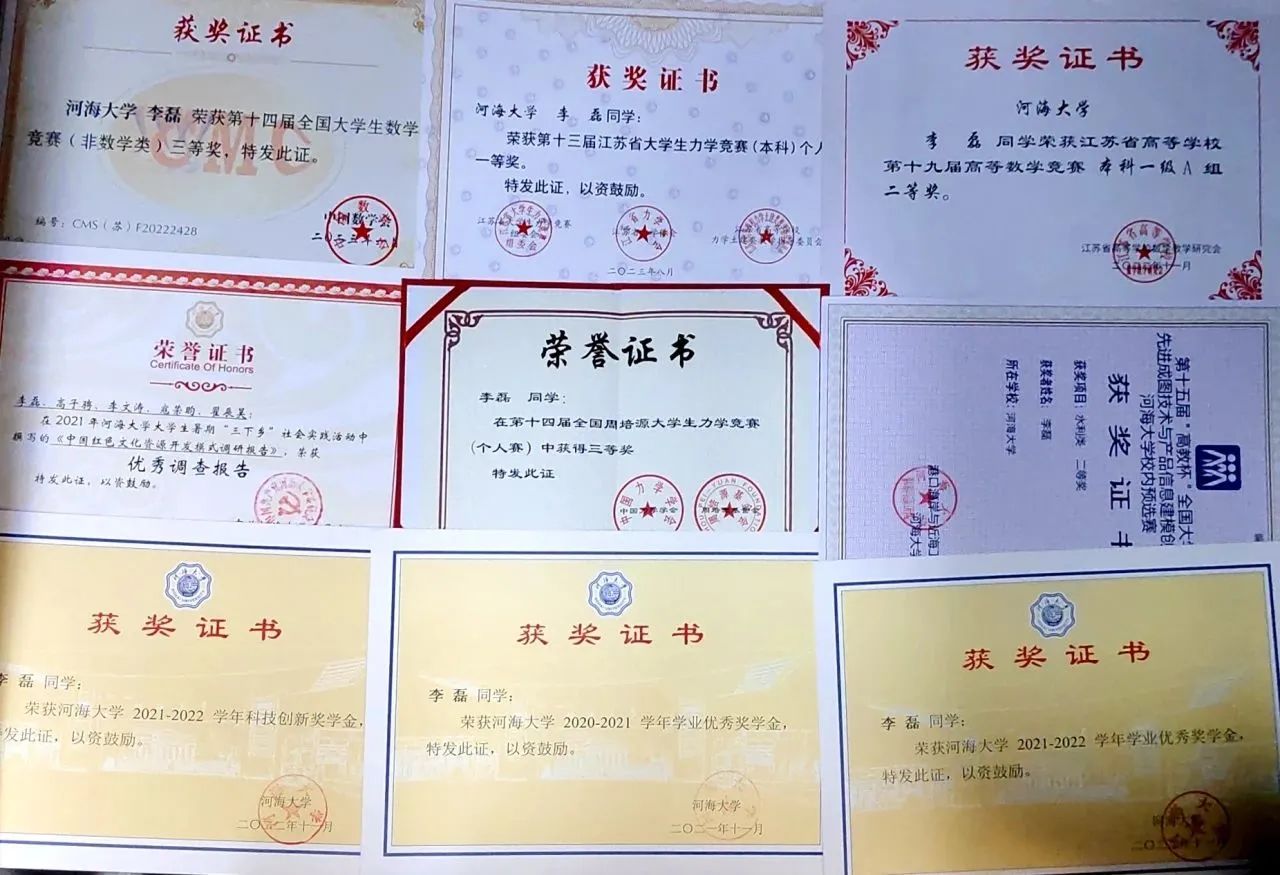 获奖证书
河海大学 李磊 荣获第十四届全国大学生数学
竞赛（非数学类）三等奖，特发此证。
编号：CMS（苏）F20222428
中国数学会
获奖证书
河海大学 李 磊同学：
荣获第十三届江苏省大学生力学竞赛（本科）个人
一等奖。
特发此证，以资鼓励。
二〇二三年八月
获奖证书
河海大学
李 磊 同学荣获江苏省高等学校
第十九届高等数学竞赛 本科一级A 组
二等奖。
江苏省高等学校数学教学研究会
荣誉证书
Certificate Of Honors
李磊、高子骋、李文涛、寇荣昀、翟辰昊：
在2021年河海大学大学生暑期“三下乡”社会实践活动中
撰写的《中国红色文化资源开发模式调研报告》，荣获
优秀调查报告
特发此证，以资鼓励。
荣誉证书
李磊 同学：
在第十四届全国周培源大学生力学竞赛
（个人赛）中获得三等奖
特发此证
中国力学学会
第十五届“高教杯”全国大
先进成图技术与产品信息建模创
河海大学校内预选赛
获奖证书
获奖项目：水利类 二等奖
获奖者姓名：李磊
所在学校：河海大学
港口海岸与近海工
河海大学
获奖证书
李 磊 同学：
荣获河海大学 2021-2022 学年科技创新奖学金，
特发此证，以资鼓励。
河海大学
二〇二二年十一月
获奖证书
李 磊 同学：
荣获河海大学 2020-2021 学年学业优秀奖学金，
特发此证，以资鼓励。
河海大学
二〇二一年十一月
获奖证书
李 磊 同学：
荣获河海大学 2021-2022 学年学业优秀奖学金，
特发此证，以资鼓励。
河海大学
二〇二二年十一月